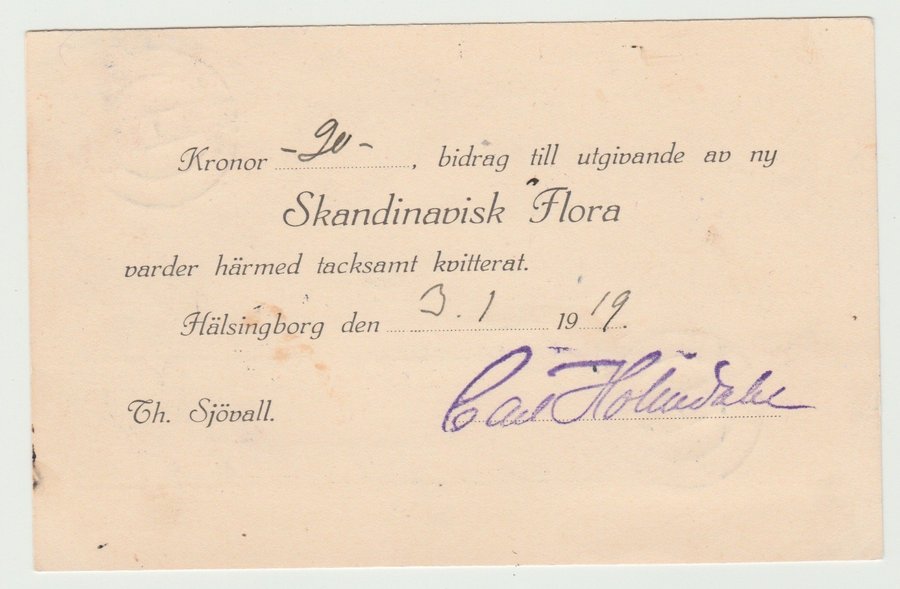 Kronor -20-, bidrag till utgivande av ny
Skandinavisk Flora
varder härmed tacksamt kvitterat.
Hälsingborg den 3.1 1919.
Th. Sjövall. Carl Holmdahl